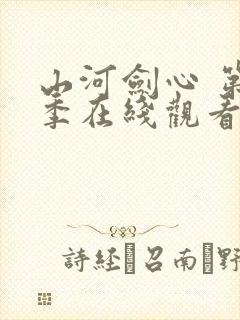 山河劍心 第
季在綫觀看
詩經 召南 野